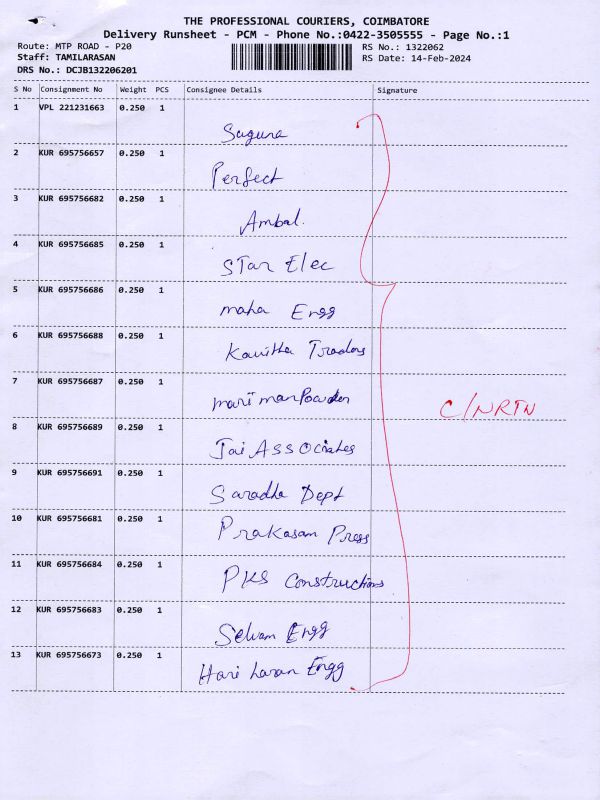 THE PROFESSIONAL COURIERS, COIMBATORE
Delivery Runsheet - PCM - Phone No.:0422-3505555 - Page No.:1
Route: MTP ROAD - P20 RS No.: 1322062
Staff: TAMILARASAN RS Date: 14-Feb-2024
DRS No.: DCJB132206201
S No Consignment No Weight PCS Consignee Details Signature
1 VPL 221231663 0.250 1 Suguna
2 KUR 695756657 0.250 1 Perfect
3 KUR 695756682 0.250 1 Ambal.
4 KUR 695756685 0.250 1 STar Elec
5 KUR 695756686 0.250 1 maha Engg
6 KUR 695756688 0.250 1 Kavitha Traders
7 KUR 695756687 0.250 1 mariman Powder
C/NRTN
8 KUR 695756689 0.250 1 Jai ASSOciates
9 KUR 695756691 0.250 1 Saradha Dept
10 KUR 695756681 0.250 1 Prakasam Press
11 KUR 695756684 0.250 1 PKS Constructions
12 KUR 695756683 0.250 1 Selvam Engg
13 KUR 695756673 0.250 1 Hari haran Engg